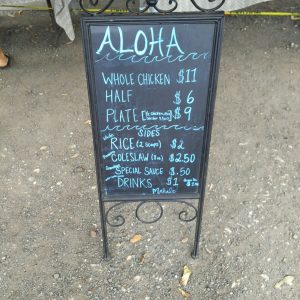 ALOHA
WHOLE CHICKEN $11
HALF $6
PLATE $9
SIDES
RICE (2 scoops) $2
COLESLAW (8oz) $2.50
SPECIAL SAUCE $.50
DRINKS $1
Mahalo